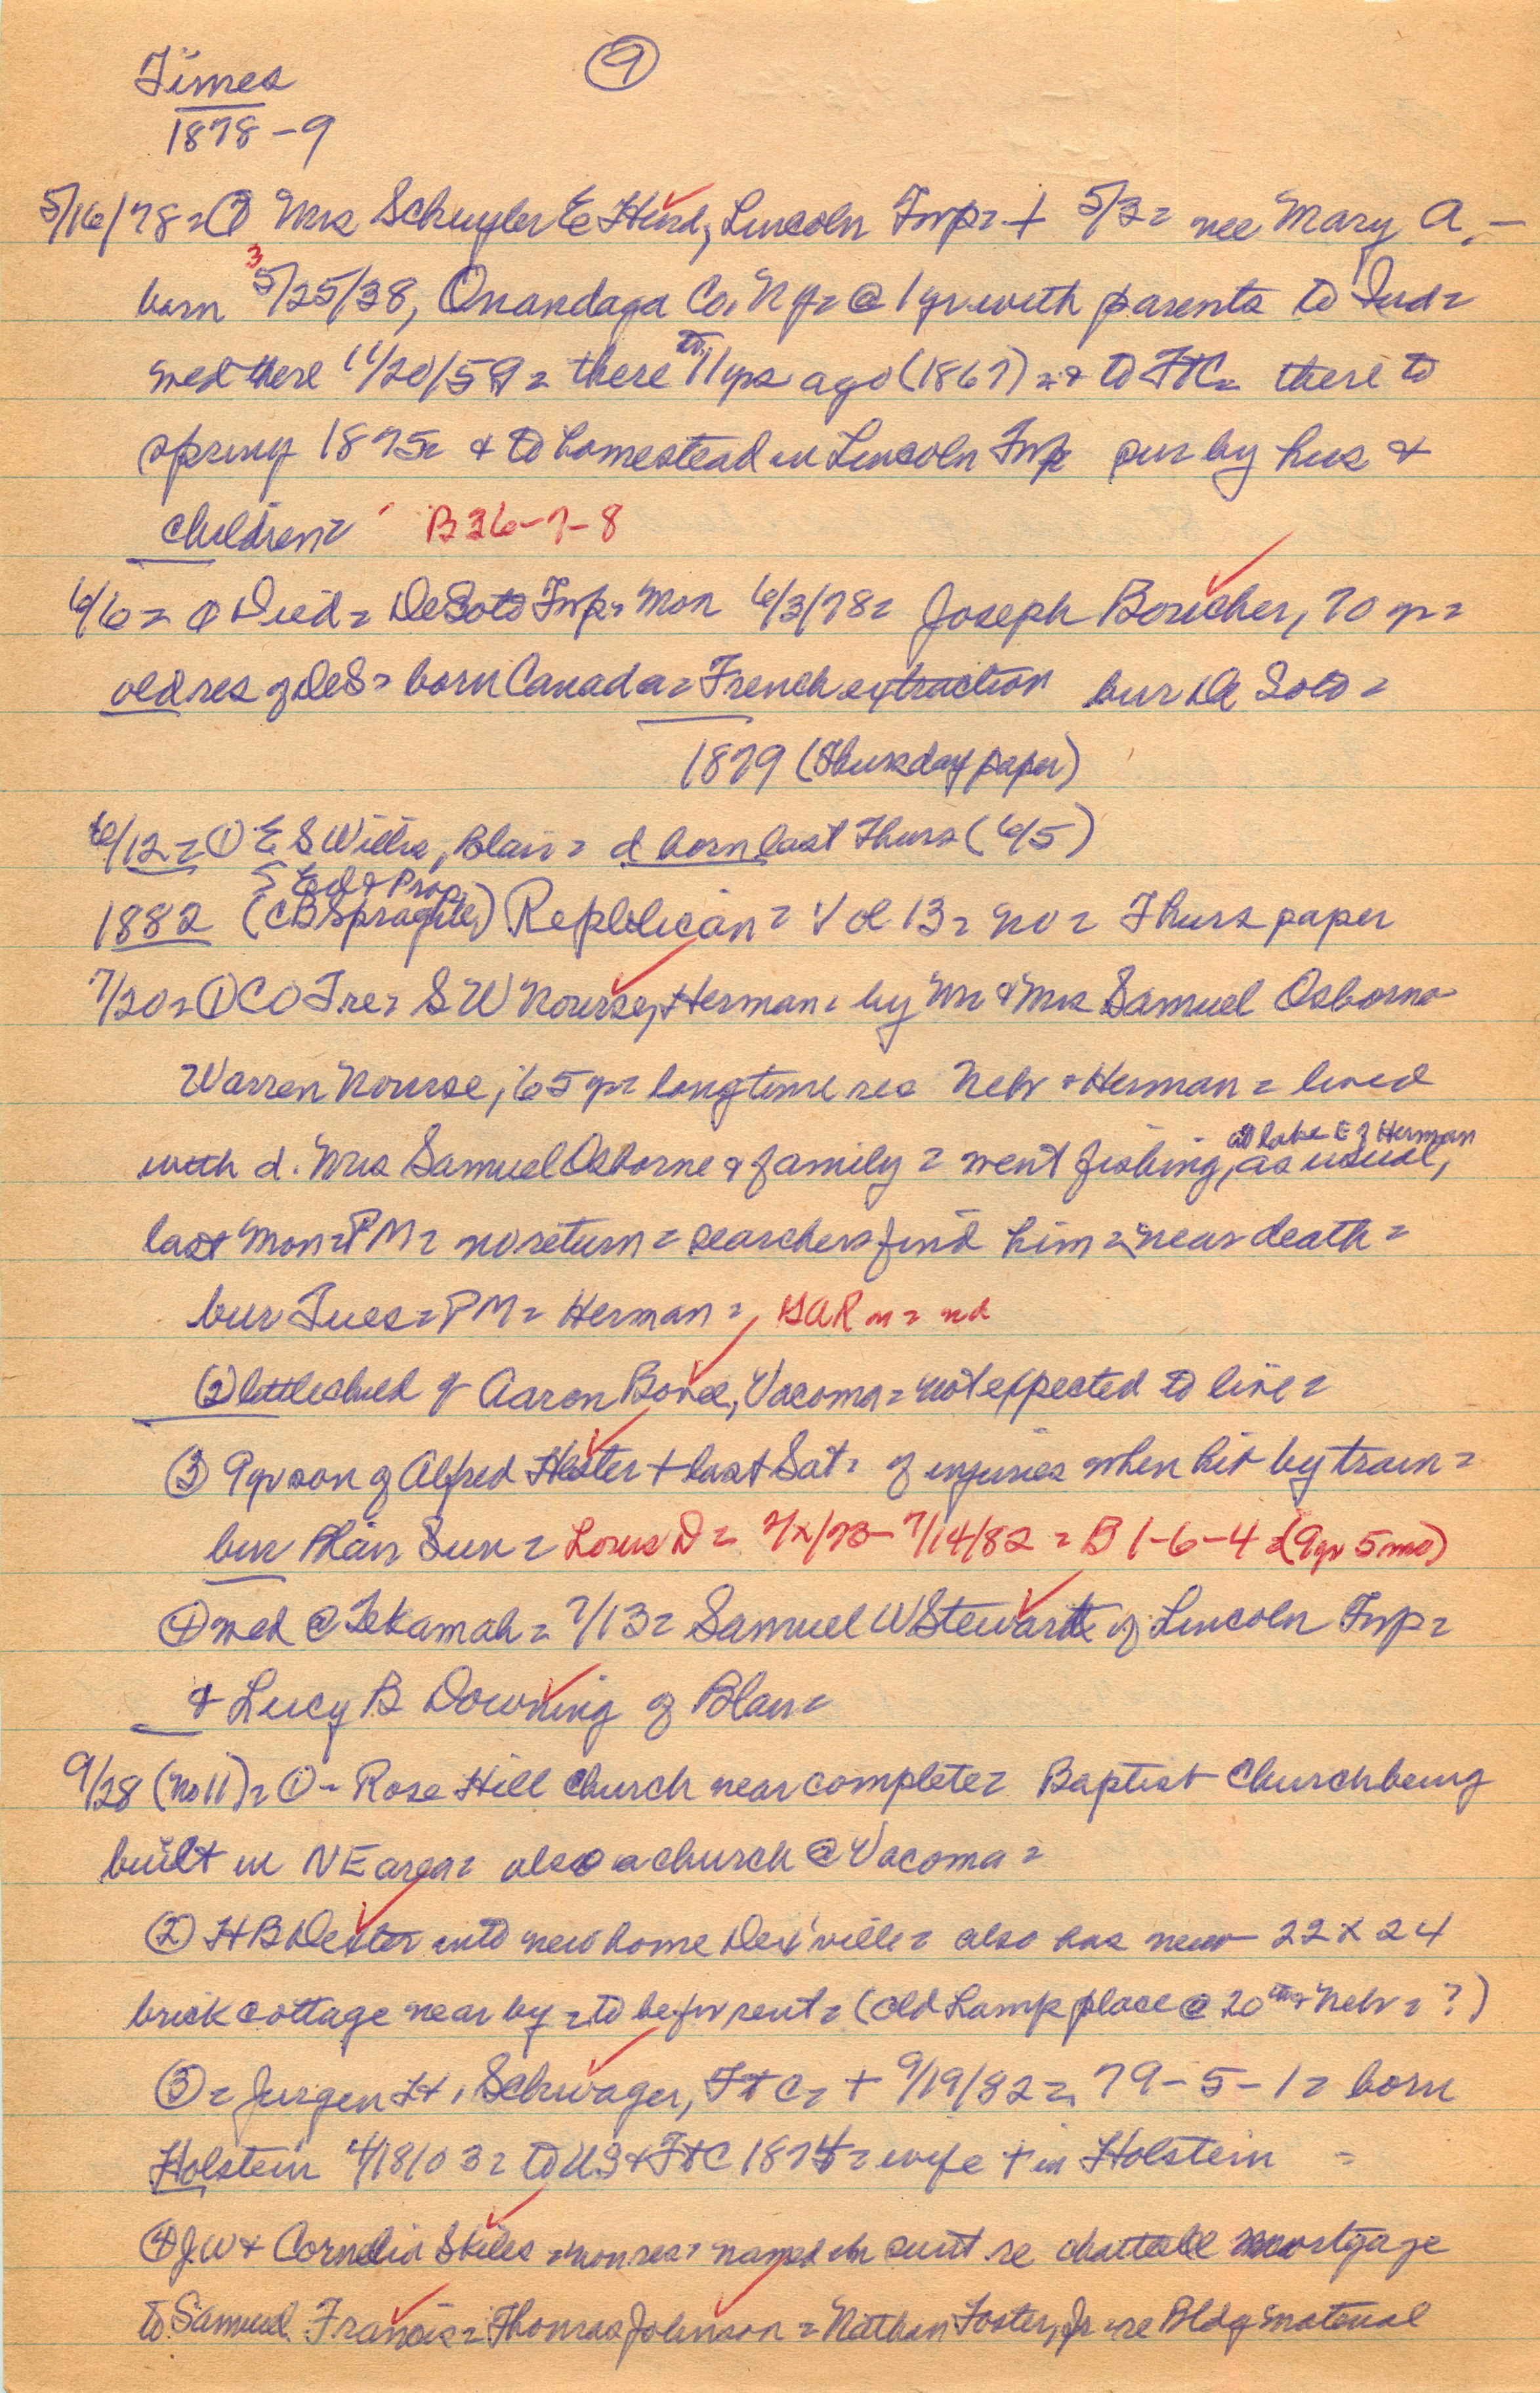 Times
9
1878-9
5/16/78 = ① Mrs Schuyler E Hurd, Lincoln Twp = + 5/3 = nee Mary A. —
3
born 5/25/38, Onandaga Co. N Y = @ 1 yr with parents to Ind =
med there 11/20/59 = there to 11 yrs ago (1867) = & to FtC = there to
spring 1875 = & to homestead in Lincoln Twp sur by hus &
children = B36-7-8
6/6 = ① Died = DeSoto Twp = Mon 6/3/78 = Joseph Boucher, 70 yr =
old res of DeS = born Canada = French extraction bur De Soto =
1879 (Thursday paper)
6/12 = ① E S Willis, Blair = d born last Thurs (6/5)
Ed & Prop
1882 (CB Sprague) Replblican = Vol 13 = no = Thurs paper
7/20 = ① CO Tre = S W Nourse, Herman = by Mr & Mrs Samuel Osborne
Warren Nourse, 65 yr = longtime res Nebr & Herman = lived
at lake E of Herman
with d. Mrs Samuel Osborne & family = went fishing, as usual,
last Mon = PM = no return = searchers find him = near death =
bur Tues = PM = Herman = GAR m = nd
② little child of Aaron Bovee, Vacoma = not expected to live =
③ 9 yr son of Alfred Hester + last Sat = of injuries when hit by train =
bur Blair Sun = Lorus D = 2/x/73 - 7/14/82 = B 1-6-4 = (9 yr 5 mo)
④ med @ Tekamah = 7/13 = Samuel W Stewart of Lincoln Twp =
& Lucy B Downing of Blair =
9/28 (no 11) = ① - Rose Hill Church near complete = Baptist Church being
built in NE area = also a church @ Vacoma =
② H B Dexter into new home Dex'ville = also has new 22 x 24
brick cottage near by = to be for rent = (old Lamp place @ 20th & Nebr = ?)
③ = Jurgen H. Schwager, Ft C = + 9/19/82 = 79-5-1 = born
Holstein 4/18/03 = to US & Ft C 1874 = wife + in Holstein =
④ J W & Cornelia Skiles = nonres = named in suit re chattell mortgage
to Samuel Francis = Thomas Johnson = Nathan Foster, Jr = re Bldg material